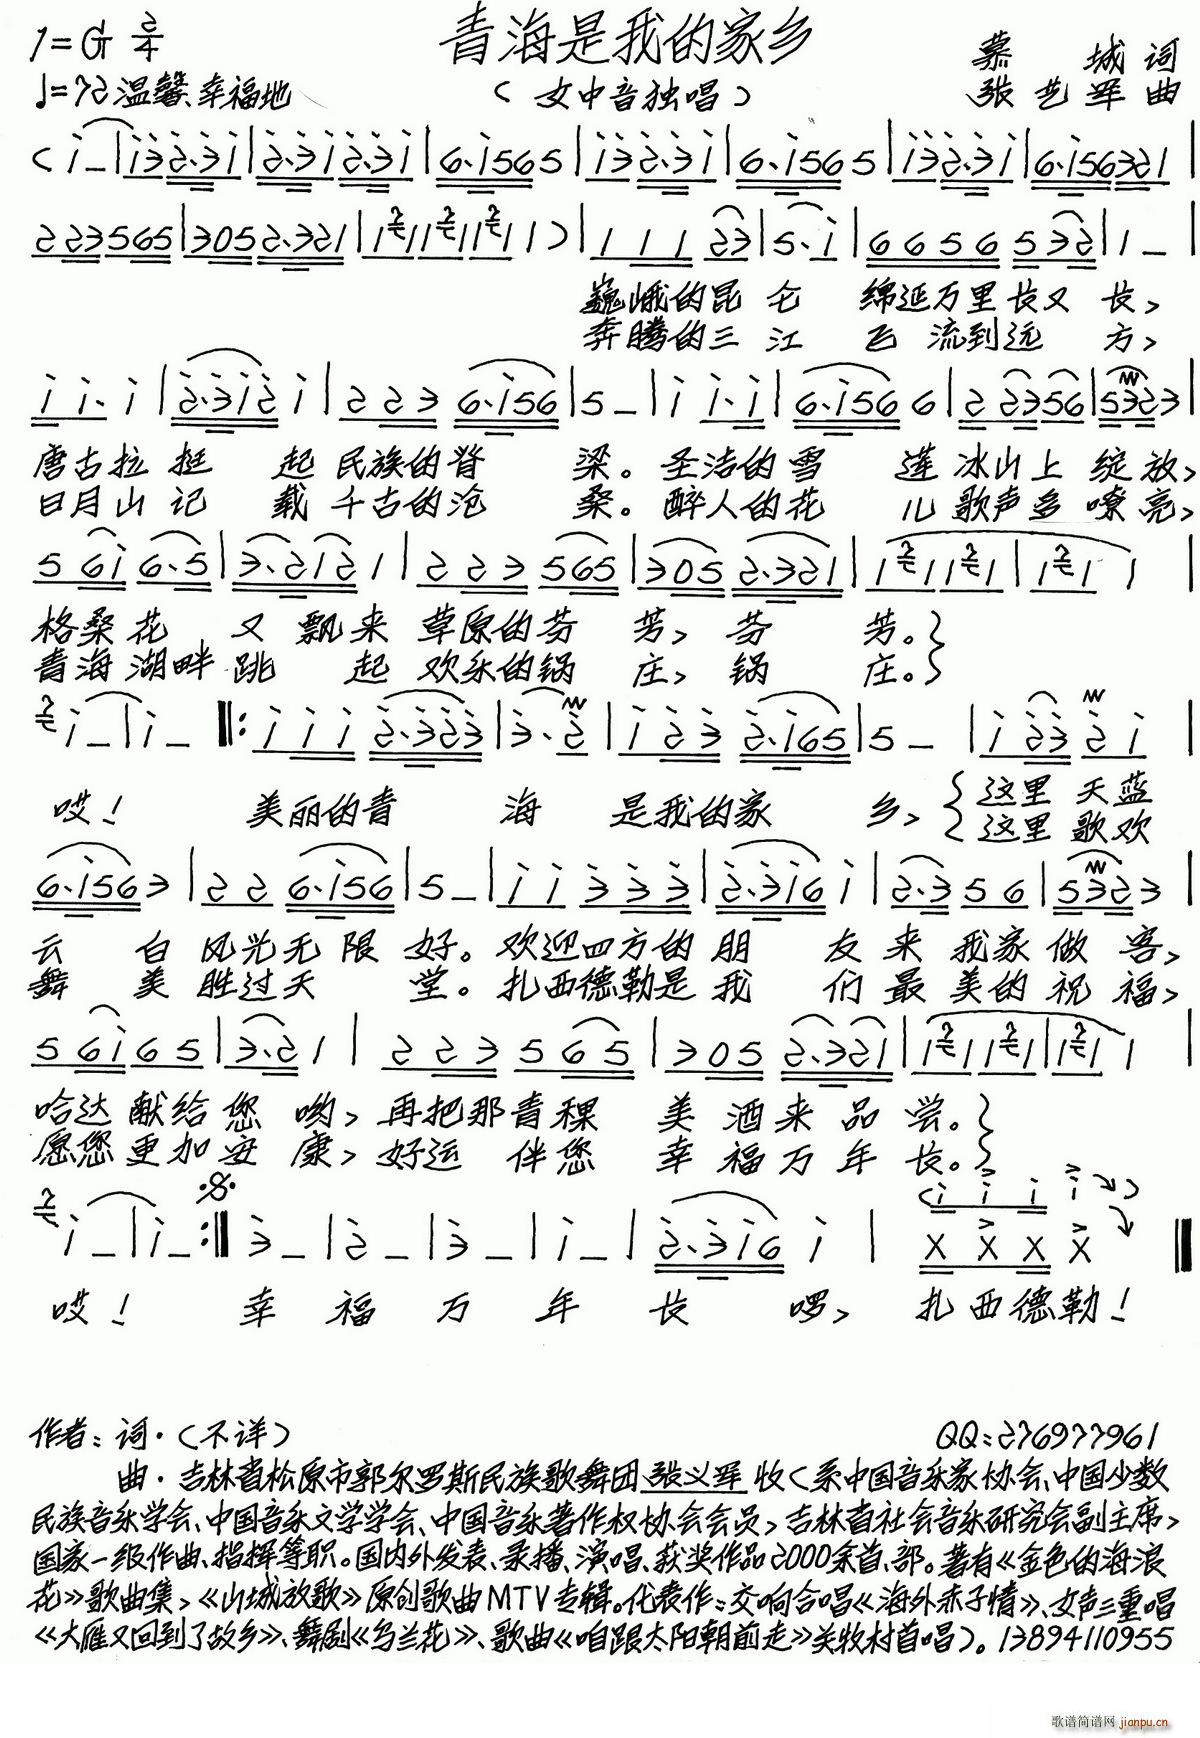 1=G 2/4
青海是我的家乡
慕城 词
♩=72 温馨、幸福地
（女中音独唱）
张艺军 曲
巍峨的昆仑 绵延万里长又长，
奔腾的三江 飞流到远方，
唐古拉挺起民族的脊梁。圣洁的雪莲冰山上绽放，
日月山记载千古的沧桑。醉人的花儿歌声多嘹亮，
格桑花又飘来草原的芬芳，芬芳。
青海湖畔跳起欢乐的锅庄，锅庄。
哎！ 美丽的青海是我的家乡，
这里天蓝
这里歌欢
云白风光无限好。欢迎四方的朋友来我家做客，
舞美胜过天堂。扎西德勒是我们最美的祝福，
哈达献给您哟，再把那青稞美酒来品尝。
愿您更加安康，好运伴您幸福万年长。
哎！ 幸福万年长啰，扎西德勒！
作者：词·（不详） QQ：276977961
曲·吉林省松原市郭尔罗斯民族歌舞团张义军收（系中国音乐家协会、中国少数
民族音乐学会、中国音乐文学学会、中国音乐著作权协会会员，吉林省社会音乐研究会副主席，
国家一级作曲、指挥等职。国内外发表、录播、演唱、获奖作品2000余首、部。著有《金色的海浪
花》歌曲集，《山城放歌》原创歌曲MTV专辑。代表作：交响合唱《海外赤子情》、女声三重唱
《大雁又回到了故乡》、舞剧《乌兰花》、歌曲《咱跟太阳朝前走》关牧村首唱）。13894110955
歌谱简谱网 jianpu.cn